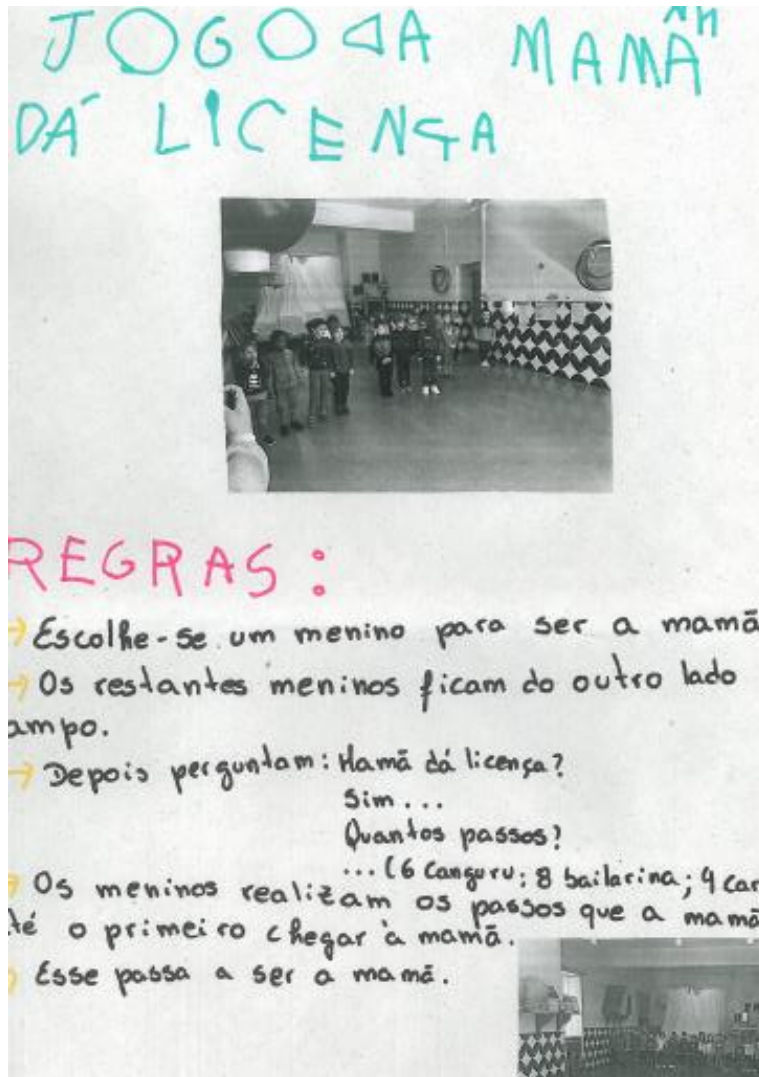 JOGO DA "MAMÃ
DÁ LICENÇA
REGRAS:
→ Escolhe-se um menino para ser a mamã
→ Os restantes meninos ficam do outro lado
ampo.
→ Depois perguntam: Mamã dá licença?
Sim...
Quantos passos?
... (6 Canguru; 8 bailarina; 4 car
→ Os meninos realizam os passos que a mamã
té o primeiro chegar à mamã.
Esse passa a ser a mamã.